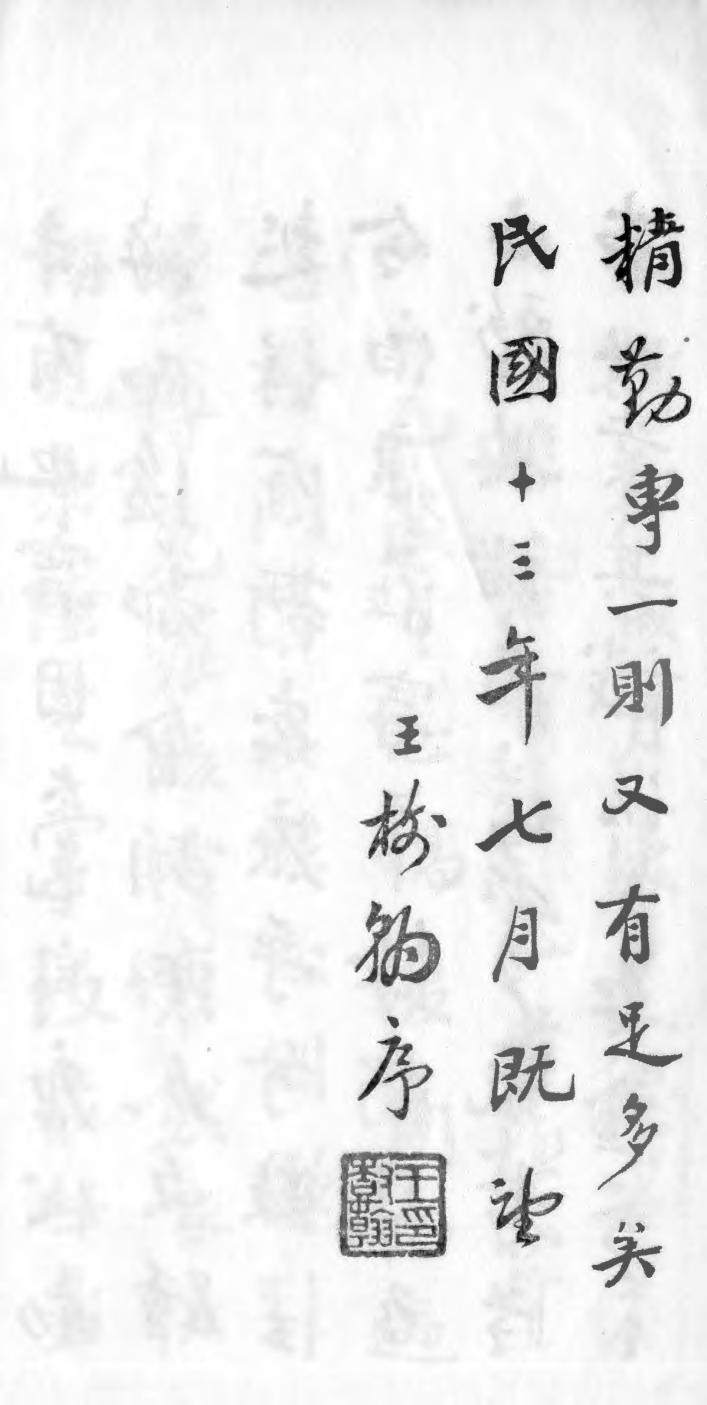 精勤專一則又有足多矣
民國十三年七月既望
王樹翰序
王印樹翰